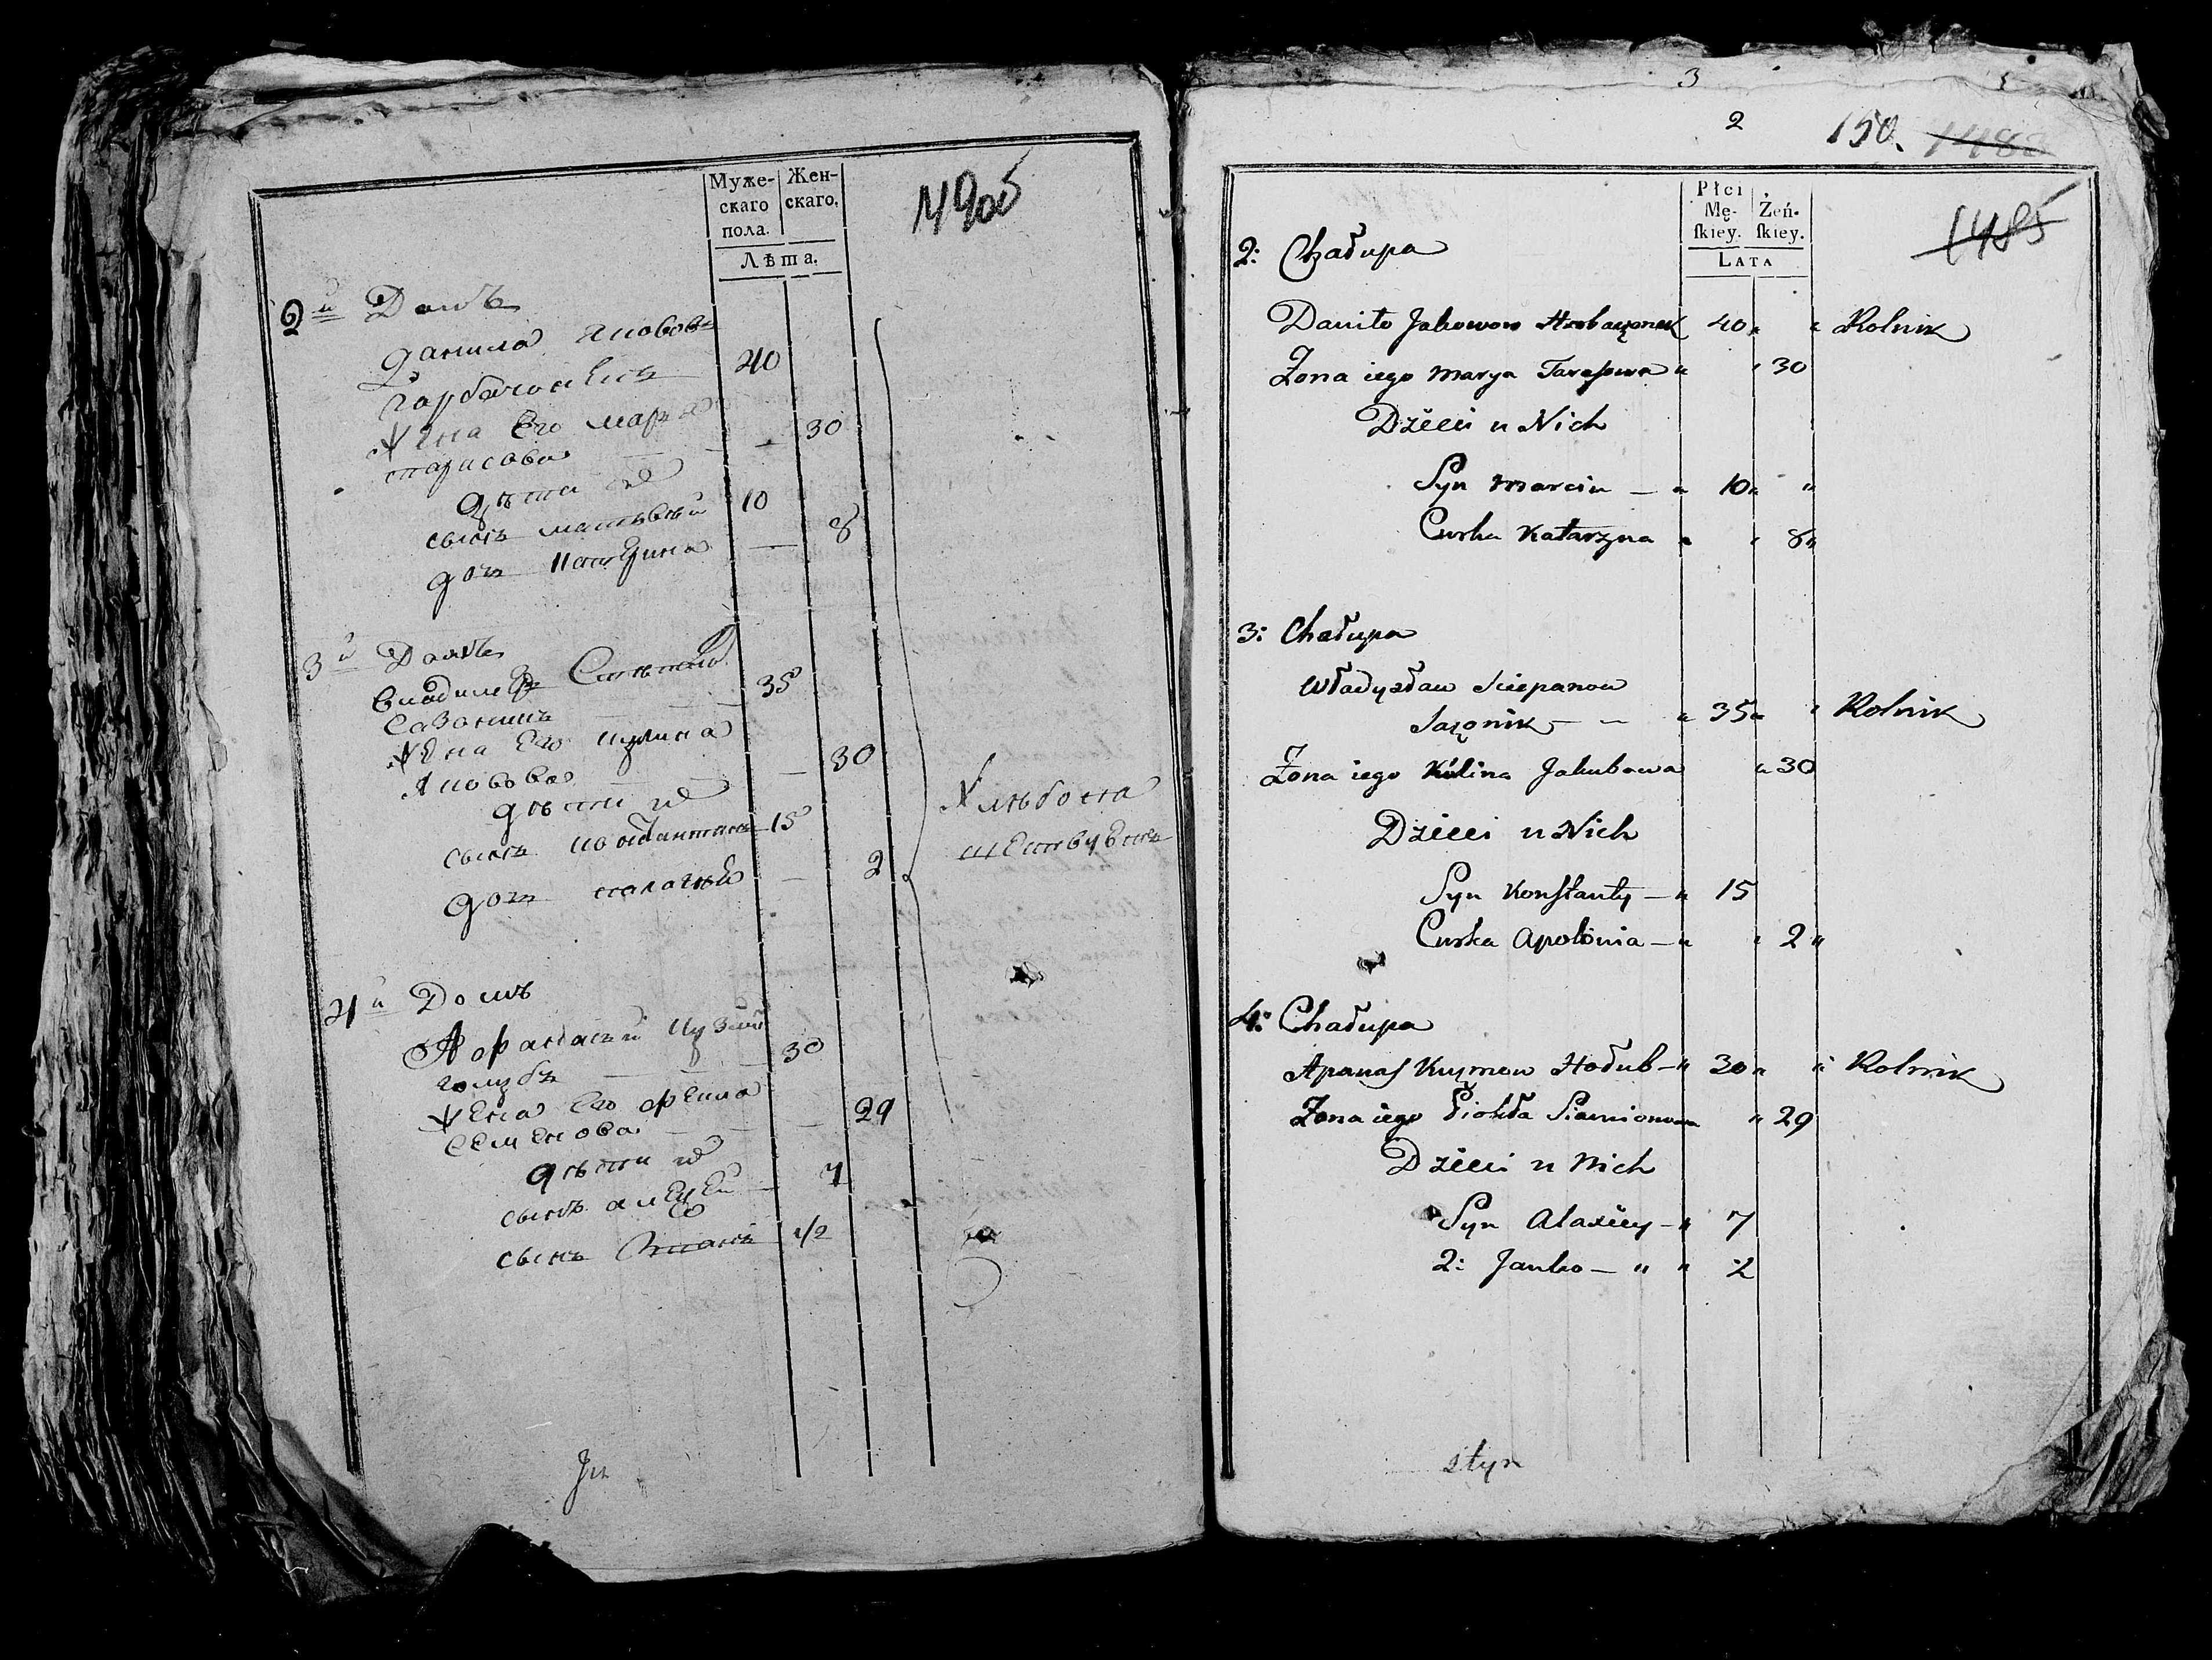 Муже-
скаго
пола.
Жен-
скаго.
Лѣта.
149об
2й Домъ
Данила Якововъ
Гарбачонекъ 40
Жена Его Марья
тарасова 30
дѣти их
сынъ матьвѣй 10
дочь Катерина 8
3й Домъ
Владимеръ
Сазоникъ 35
Жена Его Кулина
Яковова 30
дѣти их
сынъ Костантинъ 15
дочь 2
Хлѣбопа
шествуетъ
4й Домъ
Афанасъй Кузмин
голубъ 30
Жена Его фекла
Семенова 29
дѣти их
сынъ алексей 7
сынъ 1/2
3
2
150. 1482
Płci
Mę-
ſkiey.
Żeń-
ſkiey.
LATA
1485
2: Chałupa
Daniło Jakowow Hrobaczonek 40 „ „ Rolnik
Żona iego Marya Tarasowa „ „ 30
Dzieci u Nich
Syn Marcin — „ 10 „ „
Curka Katarzyna „ „ 8 „
3: Chałupa
Władysław Sciepanow
Sazonik — — „ 35 „ „ Rolnik
Żona iego Kulina Jakubowa „ 30
Dzieci u Nich
Syn Konſtanty — „ 15
Curka Apolonia — „ „ 2 „
4: Chałupa
Apanaſ Kuzmow Hołub — „ 30 „ „ Rolnik
Żona iego Siamionowa „ 29
Dzieci u Nich
Syn Alaxiey — „ 7
2: Janko — „ „ 2